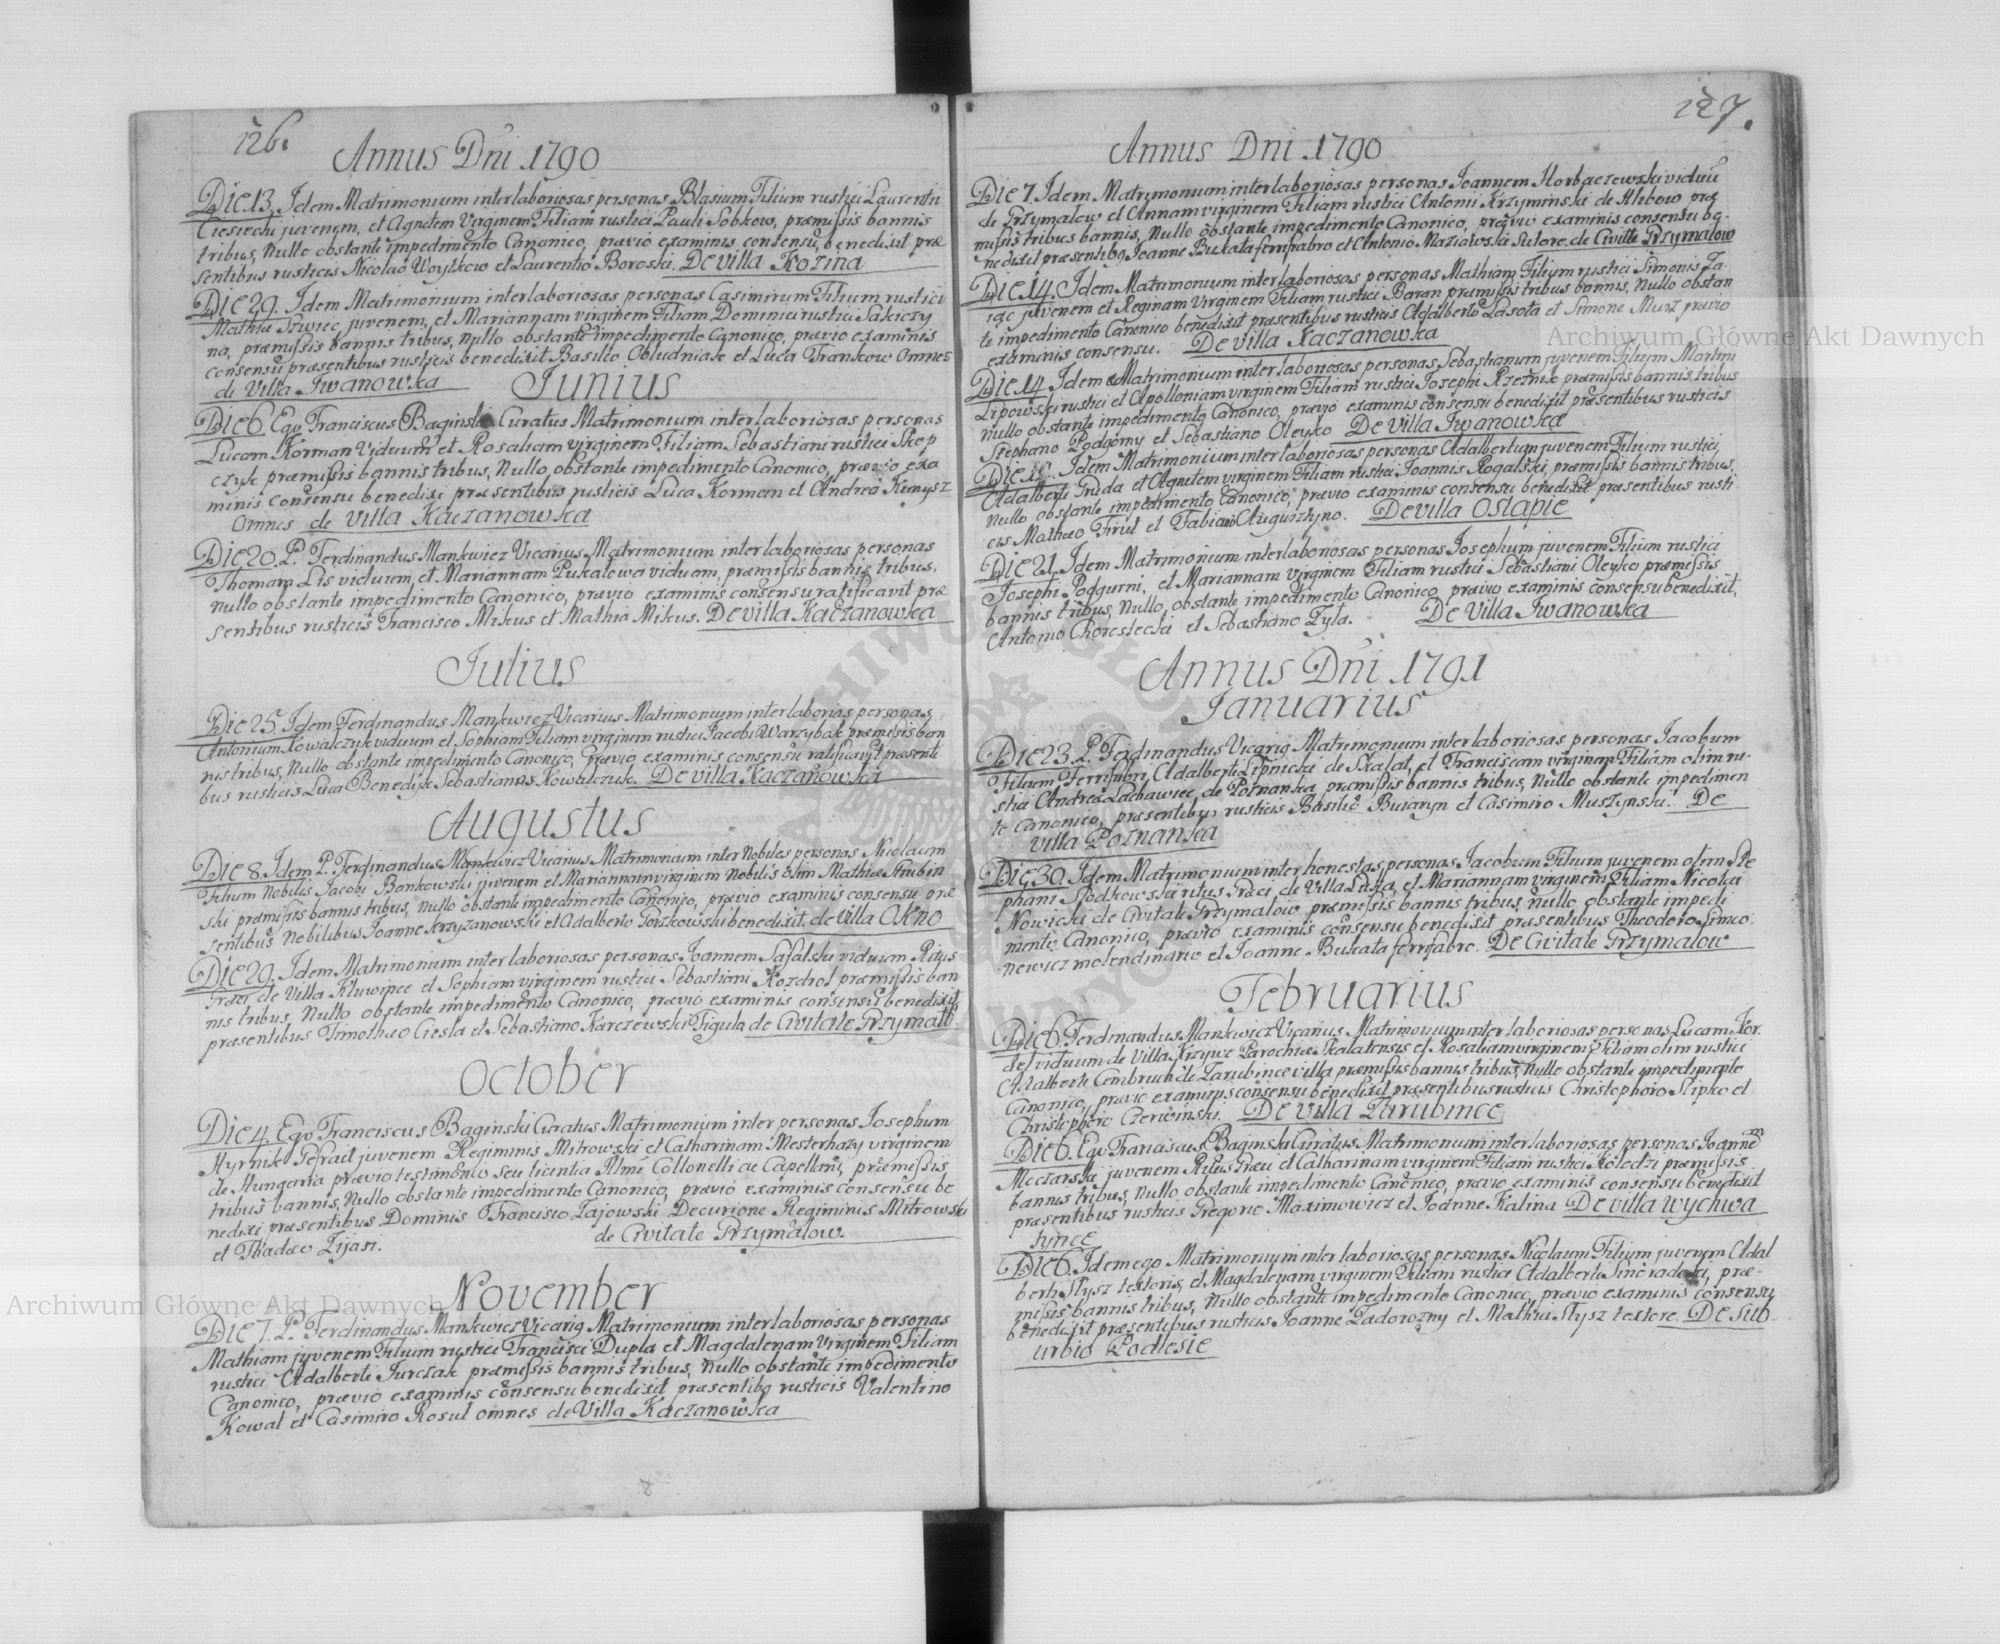 126.
Annus Dni 1790
Die 13. Idem Matrimonium inter laboriosas personas Blasium Filium rustici Laurentii
Ciesiechi juvenem, et Agnetem Virginem Filiam rustici Pauli Sobkow, præmissis bannis
tribus, Nullo obstante impedimento Canonico, prævio examinis consensu, benedixit præ
sentibus rusticis Nicolao Woytkow et Laurentio Boroski. De Villa Kozina
Die 29. Idem Matrimonium inter laboriosas personas Casimirum Filium rustici
Mathiæ Szwiec, juvenem, et Mariannam virginem Filiam Dominici rustici Sakiczy
na, præmissis bannis tribus, nullo obstante impedimento Canonico, prævio examinis
consensu præsentibus rusticis benedixit Basilio Obludniak et Luca Frankow Omnes
de Villa Iwanowka
Iunius
Die 6. Ego Franciscus Baginski Curatus Matrimonium inter laboriosas personas
Lucam Korman Viduum et Rosaliam virginem Filiam Sebastiani rustici Step
czyk præmissis bannis tribus, Nullo obstante impedimento Canonico, prævio exa
minis consensu benedixi præsentibus rusticis Luca Korman et Andrea Kunysz
Omnes de Villa Kaczanowka
Die 20. P. Ferdinandus Mankwicz Vicarius Matrimonium inter laboriosas personas
Thomam Lis viduum, et Mariannam Pukalowa viduam, præmissis bannis tribus,
nullo obstante impedimento Canonico, prævio examinis consensu ratificavit præ
sentibus rusticis Francisco Mikus et Mathia Mikus. De Villa Kaczanowka
Iulius
Die 25. Idem Ferdinandus Mankwicz Vicarius Matrimonium inter laborias personas
Antonium Kowalczyk viduum et Sophiam Filiam virginem rustici Jacobi Warzybak præmissis ban
nis tribus, Nullo obstante impedimento Canonico, prævio examinis consensu ratificavit præsenti
bus rusticis Luca Benedyk Sebastianus Kowalczuk. De Villa Kaczanowka
Augustus
Die 8. Idem P. Ferdinandus Mankwicz Vicarius Matrimonium inter Nobiles personas Nicolaum
Filium Nobilis Jacobi Bankowski juvenem et Mariannam virginem Nobilis olim Mathiæ Strubin
ski præmissis bannis tribus, nullo obstante impedimento Canonico, prævio examinis consensu præ
sentibus Nobilibus Joanne Krzyzanowski et Adalberto Gorzkowski benedixit. de Villa Okno
Die 29. Idem Matrimonium inter laboriosas personas Joannem Safalski viduum Ritus
Græci de Villa Kluwince et Sophiam virginem rustici Sebastiani Kozdrol præmissis ban
nis tribus, Nullo obstante impedimento Canonico, prævio examinis consensu benedixit
præsentibus Timotheo Ciesla et Sebastiano Karczewski Figulo de Civitate Grzymało
October
Die 4. Ego Franciscus Baginski Curatus Matrimonium inter personas Josephum
Hyrnik Gefrait juvenem Regiminis Mitrowski et Catharinam Mesterhazy virginem
de Hungaria prævio testimonio seu licentia Almi Collonelli ac Capellani, præmissis
tribus bannis, Nullo obstante impedimento Canonico, prævio examinis consensu be
nedixi præsentibus Dominis Francisco Zajowski Decurione Regiminis Mitrowski
et Thadæo Zijasi. de Civitate Grzymalow.
November
Die 7. P. Ferdinandus Mankwicz Vicarig Matrimonium inter laboriosas personas
Mathiam juvenem Filium rustici Francisci Dupla et Magdalenam Virginem Filiam
rustici Adalberti Jurczak præmissis bannis tribus, Nullo obstante impedimento
Canonico, prævio examinis consensu benedixit præsentibq rusticis Valentino
Kowal et Casimiro Rosul omnes de Villa Kaczanowka
127.
Annus Dni 1790
Die 7. Idem Matrimonium inter laboriosas personas Joannem Horbaczewski viduu
de Grzymalow et Annam virginem Filiam rustici Antonii Krzyminski de Hlebow præ
missis tribus bannis, Nullo obstante impedimento Canonico, prævio examinis consensu be
nedixit præsentibq Joanne Bukata ferrifabro et Antonio Maziarski Sutore. de Civitte Grzymalow
Die 14. Idem Matrimonium inter laboriosas personas Mathiam Filium rustici Simonis Za
iac juvenem et Reginam Virginem Filiam rustici Baran præmissis tribus bannis, Nullo obstan
te impedimento Canonico benedixit præsentibus rusticis Adalberto Lasota et Simone Murz prævio
examinis consensu. De Villa Kaczanowka
Die 14. Idem Matrimonium inter laboriosas personas Sebastianum juvenem Filium Martini
Lipowski rustici et Apolloniam virginem Filiam rustici Josephi Rzeznik præmissis bannis tribus
nullo obstante impedimento Canonico, prævio examinis consensu benedixit præsentibus rusticis
Stephano Podgorny et Sebastiano Oleyko De Villa Iwanowka
Idem Matrimonium inter laboriosas personas Adalbertum juvenem Filium rustici
Adalberti Gruda et Agnetem virginem Filiam rustici Joannis Rogalski, præmissis bannis tribus,
Nullo obstante impedimento Canonico, prævio examinis consensu benedixit præsentibus rusti
cis Mathæo Firut et Fabiano Augusztyno. De Villa Ostapie
Die 21. Idem Matrimonium inter laboriosas personas Josephum juvenem Filium rustici
Josephi Podgurni, et Mariannam virginem Filiam rustici Sebastiani Oleyko præmissis
bannis tribus, Nullo obstante impedimento Canonico, prævio examinis consensu benedixit,
Antonio Chorostecki et Sebastiano Zyla. De Villa Iwanowka
Annus Dni 1791
Ianuarius
Die 23. P. Ferdinandus Vicarig Matrimonium inter laboriosas personas Jacobum
Filium Ferrifabri, Adalberti Lipnicki de Skalat, et Franciscam virginem Filiam olim ru
stici Andreæ Lachawiec de Poznanka præmissis bannis tribus, Nullo obstante impedimen
to Canonico, præsentibus rusticis Basilio Bucaryn et Casimiro Muszynski. De
Villa Poznanka
Die 30. Idem Matrimonium inter honestas personas Jacobum Filium juvenem olim Ste
phani Spodkowski ritus Græci de Villa Luka, et Mariannam virginem Filiam Nicolai
Nowicki de Civitate Grzymalow præmissis bannis tribus, nullo obstante impedi
mento Canonico, prævio examinis consensu benedixit præsentibus Theodoro Simio
newicz molendinario et Joanne Bukata ferrifabro. De Civitate Grzymalow
Februarius
Die 6. Ferdinandus Mankwicz Vicarius Matrimonium inter laboriosas personas Lucam For
del viduum de Villa Krzywe Parochiæ Skalatensis et Rosaliam virginem Filiam olim rustici
Adalberti Cembruch de Zarubince villa præmissis bannis tribus, Nullo obstante impedimento
Canonico, prævio examinis consensu benedixit præsentibus rusticis Christophoro Slipko et
Christophoro Czerwinski. De Villa Zarubince
Die 6. Ego Franciscus Baginski Curatus Matrimonium inter laboriosas personas Joannem
Meciarski juvenem Ritus Græci et Catharinam virginem Filiam rustici Kolodzi præmissis
bannis tribus, Nullo obstante impedimento Canonico, prævio examinis consensu benedixit
præsentibus rusticis Gregorio Maximowicz et Joanne Kalina De Villa Wychwa
tynce
Die 6. Idem ego Matrimonium inter laboriosas personas Nicolaum Filium juvenem Adal
berti Slysz textoris, et Magdalenam virginem Filiam rustici Adalberti Sinoradzki, præ-
missis bannis tribus, Nullo obstante impedimento Canonico, prævio examinis consensu
benedixit præsentibus rusticis Joanne Zadorozny et Mathia Slysz textore. De Sub
urbio Podlesie
8
Archiwum Główne Akt Dawnych
Archiwum Główne Akt Dawnych